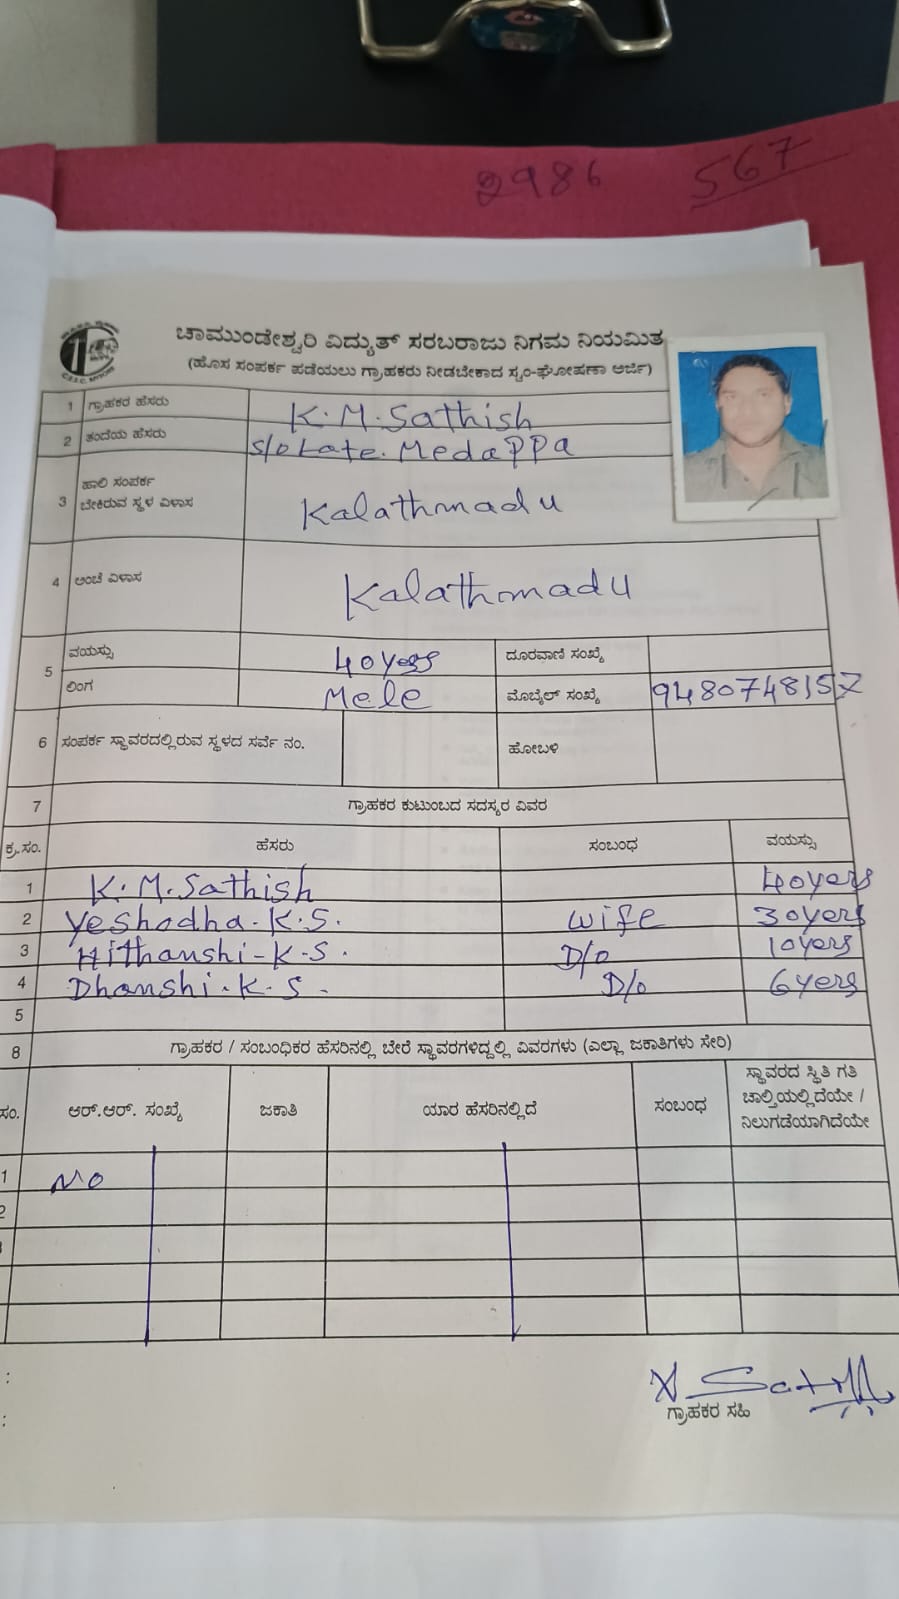 2986 567
ಚಾಮುಂಡೇಶ್ವರಿ ವಿದ್ಯುತ್ ಸರಬರಾಜು ನಿಗಮ ನಿಯಮಿತ
(ಹೊಸ ಸಂಪರ್ಕ ಪಡೆಯಲು ಗ್ರಾಹಕರು ನೀಡಬೇಕಾದ ಸ್ವಂ-ಘೋಷಣಾ ಅರ್ಜಿ)
1 ಗ್ರಾಹಕರ ಹೆಸರು K.M.Sathish
2 ತಂದೆಯ ಹೆಸರು S/o Late. Medappa
3 ಹಾಲಿ ಸಂಪರ್ಕ
ಬೇಕಿರುವ ಸ್ಥಳ ವಿಳಾಸ Kalathmadu
4 ಅಂಚೆ ವಿಳಾಸ Kalathmadu
5 ವಯಸ್ಸು 40 yers ದೂರವಾಣಿ ಸಂಖ್ಯೆ
ಲಿಂಗ Mele ಮೊಬೈಲ್ ಸಂಖ್ಯೆ 9480748157
6 ಸಂಪರ್ಕ ಸ್ಥಾವರದಲ್ಲಿರುವ ಸ್ಥಳದ ಸರ್ವೆ ನಂ. ಹೋಬಳಿ
7 ಗ್ರಾಹಕರ ಕುಟುಂಬದ ಸದಸ್ಯರ ವಿವರ
ಕ್ರ.ಸಂ. ಹೆಸರು ಸಂಬಂಧ ವಯಸ್ಸು
1 K.M.Sathish 40yers
2 Yeshodha.K.S. wife 30yers
3 Hithanshi-K.S. D/o 10yers
4 Dhanshi.K.S. D/o 6yers
5
8 ಗ್ರಾಹಕರ / ಸಂಬಂಧಿಕರ ಹೆಸರಿನಲ್ಲಿ ಬೇರೆ ಸ್ಥಾವರಗಳಿದ್ದಲ್ಲಿ ವಿವರಗಳು (ಎಲ್ಲಾ ಜಕಾತಿಗಳು ಸೇರಿ)
ಸಂ. ಆರ್.ಆರ್. ಸಂಖ್ಯೆ ಜಕಾತಿ ಯಾರ ಹೆಸರಿನಲ್ಲಿದೆ ಸಂಬಂಧ ಸ್ಥಾವರದ ಸ್ಥಿತಿ ಗತಿ
ಚಾಲ್ತಿಯಲ್ಲಿದೆಯೇ /
ನಿಲುಗಡೆಯಾಗಿದೆಯೇ
1 No
2
:
:
ಗ್ರಾಹಕರ ಸಹಿ